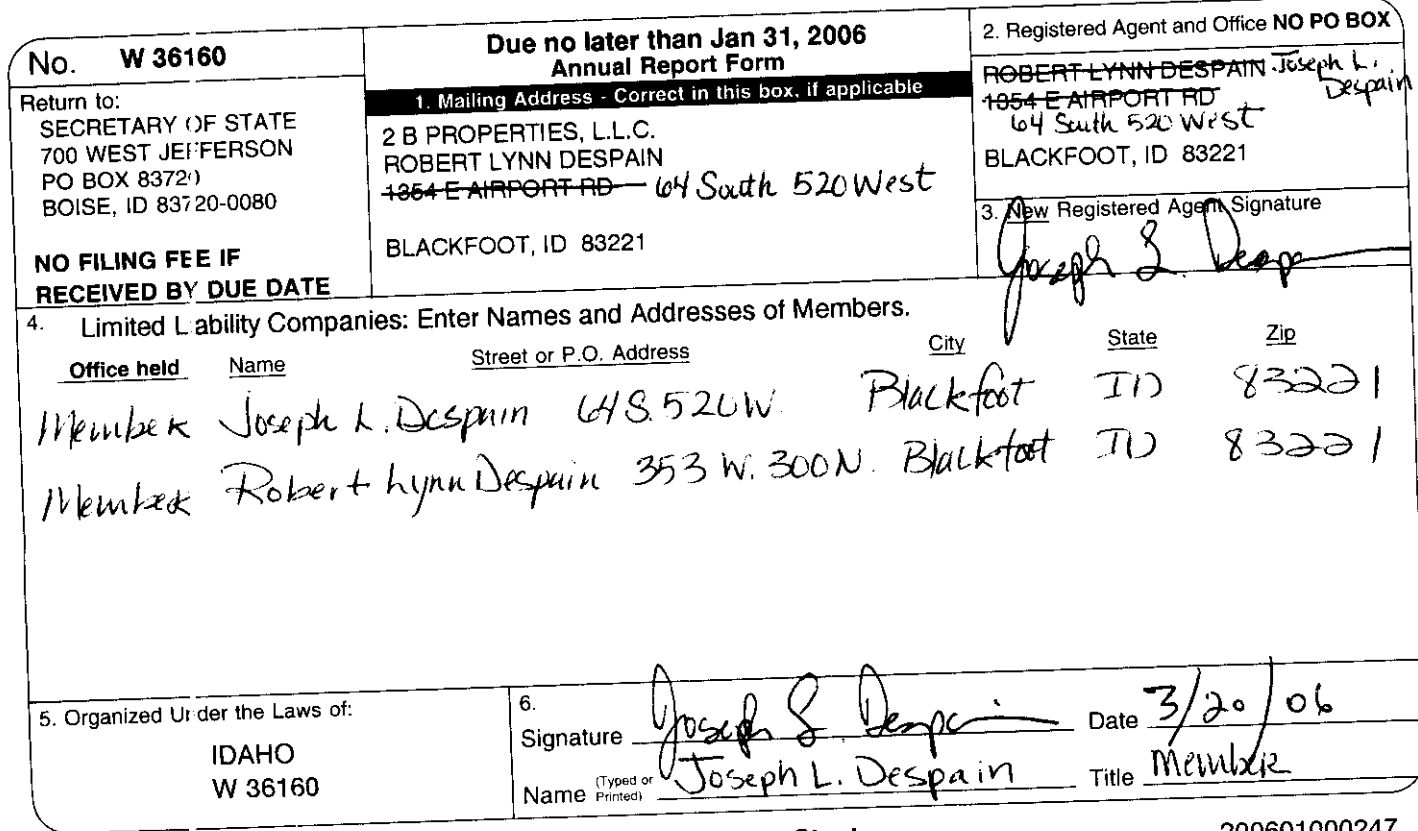 No. W 36160
Return to:
SECRETARY OF STATE
700 WEST JEFFERSON
PO BOX 83720
BOISE, ID 83720-0080
NO FILING FEE IF
RECEIVED BY DUE DATE
Due no later than Jan 31, 2006
Annual Report Form
1. Mailing Address - Correct in this box, if applicable
2 B PROPERTIES, L.L.C.
ROBERT LYNN DESPAIN
1354 E AIRPORT RD 64 South 520 West
BLACKFOOT, ID 83221
2. Registered Agent and Office NO PO BOX
ROBERT LYNN DESPAIN Joseph L.
Despain
1354 E AIRPORT RD
64 South 520 West
BLACKFOOT, ID 83221
3. New Registered Agent Signature
Joseph L. Despain
4. Limited Liability Companies: Enter Names and Addresses of Members.
Office held Name Street or P.O. Address City State Zip
Member Joseph L. Despain 64 S. 520 W. Blackfoot ID 83221
Member Robert Lynn Despain 353 W. 300 N. Blackfoot ID 83221
5. Organized Under the Laws of:
IDAHO
W 36160
6.
Signature Joseph L. Despain Date 3/20/06
Name (Typed or Printed) Joseph L. Despain Title Member
200601000247